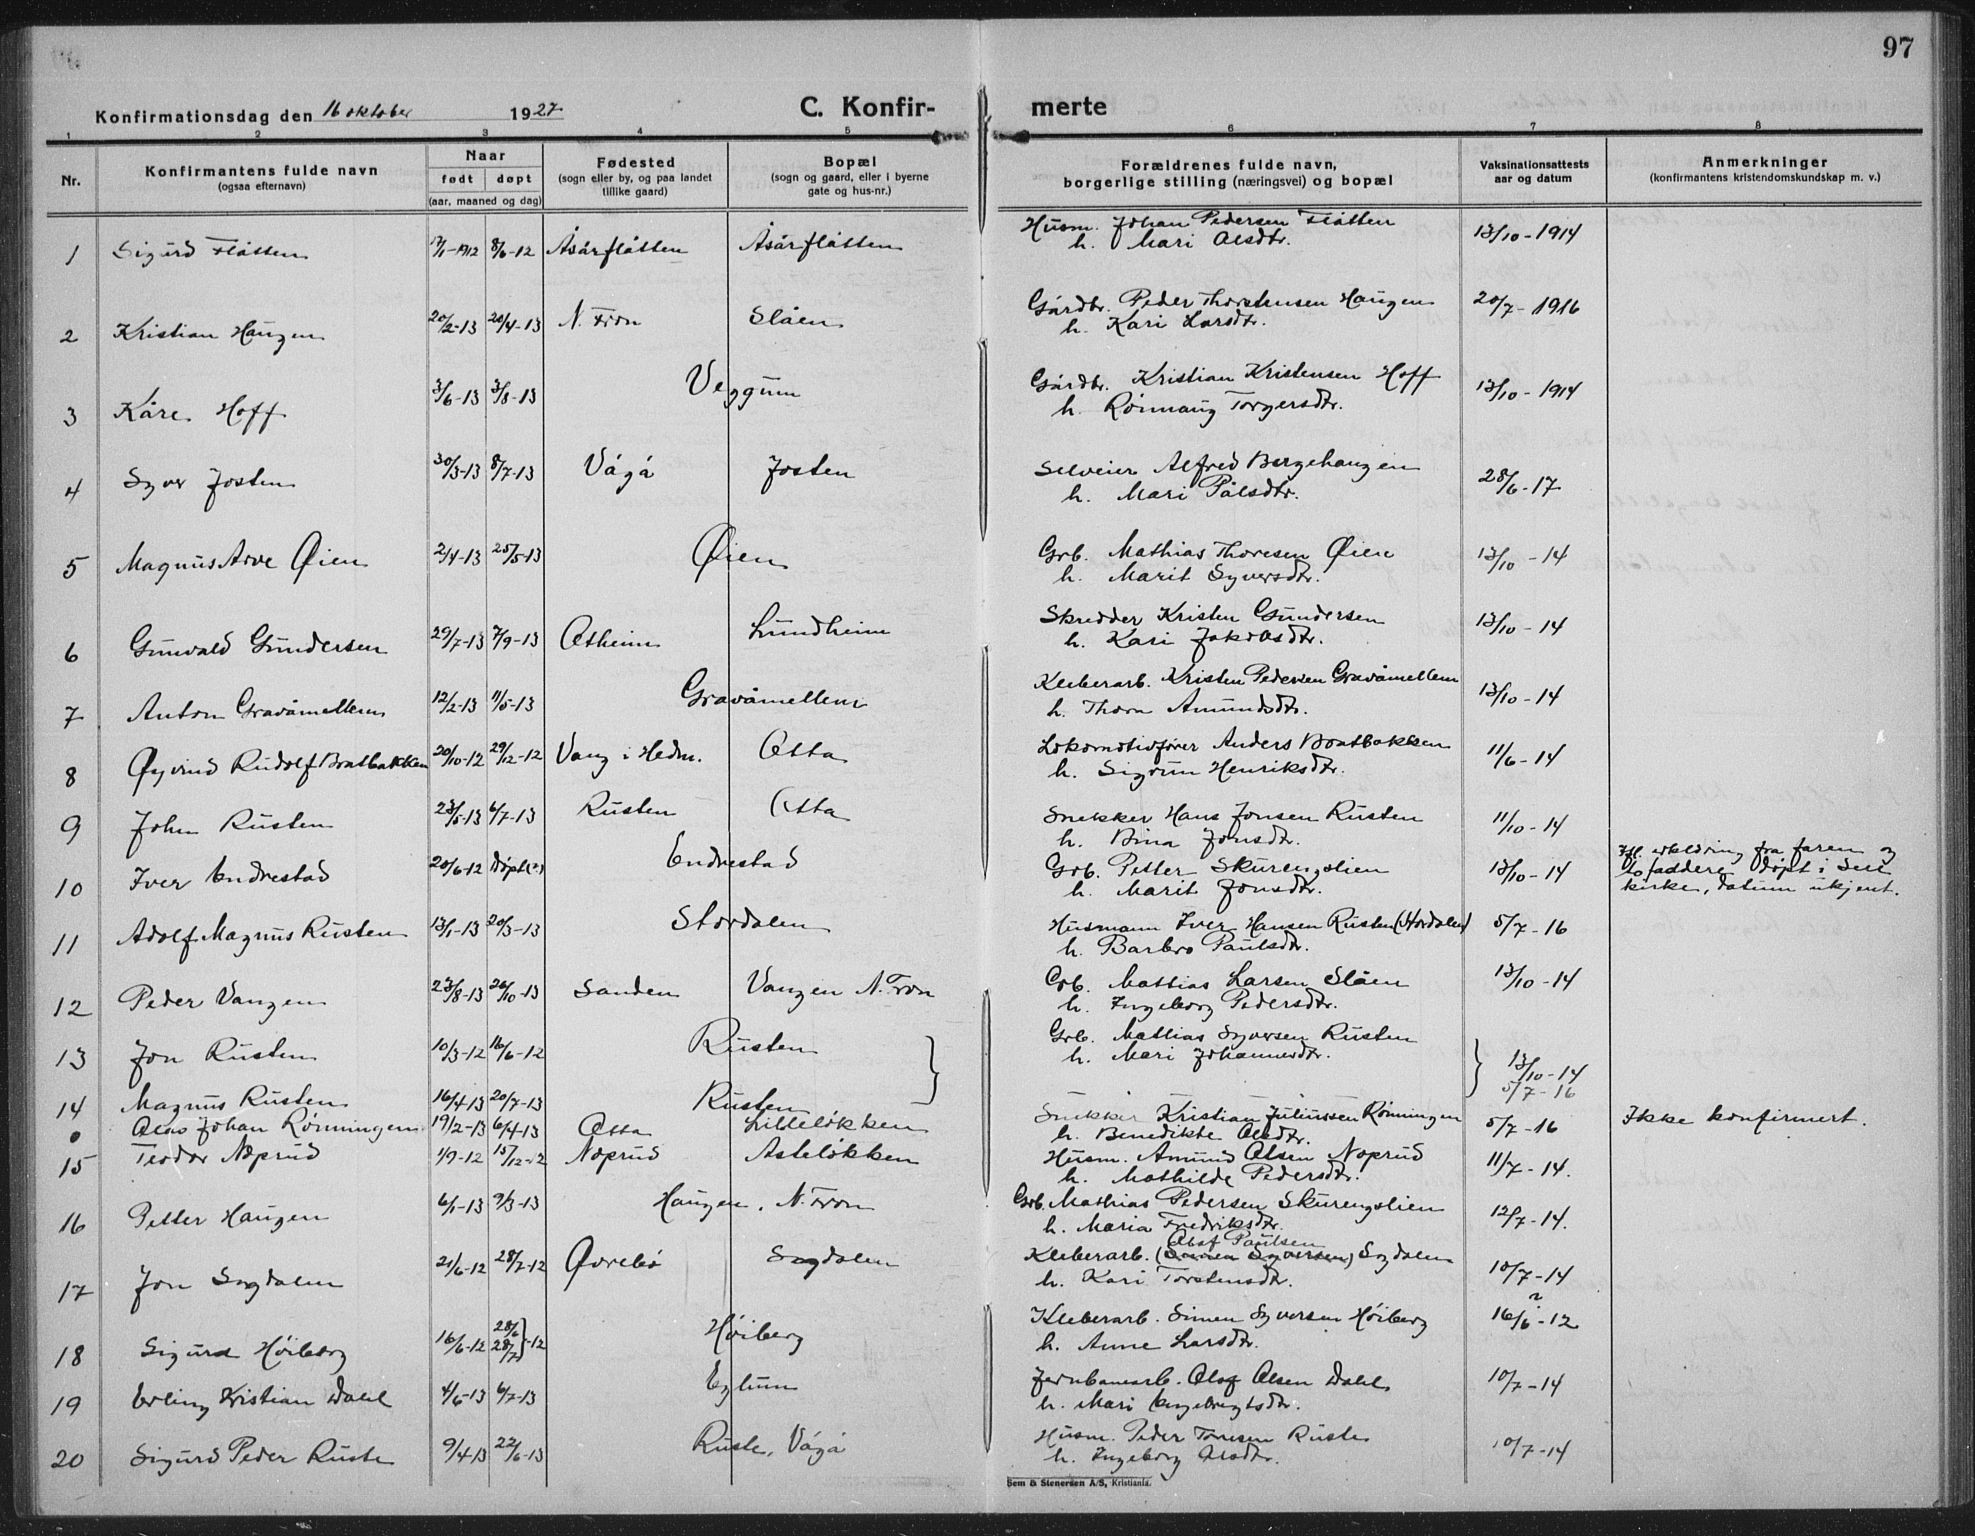 97
Konfirmationsdag den 16 oktober 1927 C. Konfir- merte
1 2 3 4 5 6 7 8
Nr.
Konfirmantens fulde navn
(ogsaa efternavn)
Naar
født døpt
(aar, maaned og dag)
Fødested
(sogn eller by, og paa landet
tillike gaard)
Bopæl
(sogn og gaard, eller i byerne
gate og hus-nr.)
Forældrenes fulde navn,
borgerlige stilling (næringsvei) og bopæl
Vaksinationsattests
aar og datum
Anmerkninger
(konfirmantens kristendomskundskap m. v.)
1 Sigurd Flåtten 17/1-1912 8/6-12 Åsårflåtten Åsårflåtten Husm. Johan Pedersen Flåtten 13/10-1914
h. Mari Olsdtr.
2 Kristian Haugen 20/2-13 20/4-13 N. Fron Slåen Gårdbr. Peder Thorstensen Haugen 20/7-1916
h. Kari Larsdtr.
3 Kåre Hoff 3/6-13 3/8-13 Veggum Gårdbr. Kristian Kristensen Hoff 13/10-1914
h. Rønnaug Torgersdtr.
4 Syver Josten 30/3-13 8/7-13 Vågå Josten Selveier Alfred Bergehaugen 28/6-17
h. Mari Pålsdtr.
5 Magnus Arve Øien 2/4-13 25/5-13 Øien Grb. Mathias Thoresen Øien 13/10-14
h. Marit Syversdtr.
6 Gunvald Gundersen 29/7-13 7/9-13 Otheim Lundheim Skredder Kristen Gundersen 13/10-14
h. Kari Jakobsdtr.
7 Anton Gravåmellem 12/2-13 11/5-13 Gravåmellem Kleberarb. Kristen Pedersen Gravåmellem 13/10-14
h. Thora Amundsdtr.
8 Øyvind Rudolf Bratbakken 20/10-12 29/12-12 Vang i Hedm. Otta Lokomotivfører Anders Bratbakken 11/6-14
h. Sigrun Henriksdtr.
9 John Rusten 23/5-13 6/7-13 Rusten Otta Snekker Hans Jonsen Rusten 11/10-14
h. Bina Jonsdtr.
10 Iver Endrestad 20/6-12 Døpt(?) Endrestad Grb. Petter Skurengslien 13/10-14 Ifl. erklæring fra faren og
h. Marit Jonsdtr. faddere døpt i Sell
kirke, datum ukjent.
11 Adolf Magnus Rusten 13/1-13 20/3-13 Stordalen Husmann Iver Hansen Rusten (Stordalen) 5/7-16
h. Barbro Paulsdtr.
12 Peder Vangen 23/8-13 26/10-13 Sanden Vangen N. Fron Grb. Mathias Larsen Slåen 13/10-14
h. Ingeborg Pedersdtr.
13 Jon Rusten 10/3-12 16/6-12 Rusten Grb. Mathias Syversen Rusten 13/10-14
h. Mari Johannesdtr.
14 Magnus Rusten 16/4-13 20/7-13 Rusten 5/7-16
0 Olas Johan Rønningen 19/2-13 6/4-13 Otta Lilleløkken Snekker Kristian Juliussen Rønningen 5/7-16 Ikke konfirmert.
h. Benedikte Olsdtr.
15 Teodor Næprud 1/9-12 15/12-12 Næprud Asleløkken Husm. Amund Olsen Næprud 11/7-14.
h. Mathilde Pedersdtr.
16 Petter Haugen 6/1-13 9/3-13 Haugen, N. Fron Grb. Mathias Pedersen Skurengslien 12/7-14.
h. Maria Fredriksdtr.
Olaf Paulsen
17 Jon Sagdalen 21/6-12 28/7-12 Øvrebø Sagdalen Kleberarb. (Simen Syversen) Sagdalen 10/7-14
h. Kari Torstensdtr.
18 Sigurd Høiberg 16/6-12 28/6 28/7 -12 Høiberg Kleberarb. Simen Syversen Høiberg 16/6-12
h. Anne Larsdtr.
19 Erling Kristian Dahl 4/6-13 6/7-13 Eghum Jernbanearb. Olaf Olsen Dahl 10/7-14
h. Mari Engebregtsdtr.
20 Sigurd Peder Ruste 9/4-13 22/6-13 Ruste, Vågå Husm. Peder Toresen Ruste 10/7-14
h. Ingeborg Olsdtr.
Sem & Stenersen A/S, Kristiania.